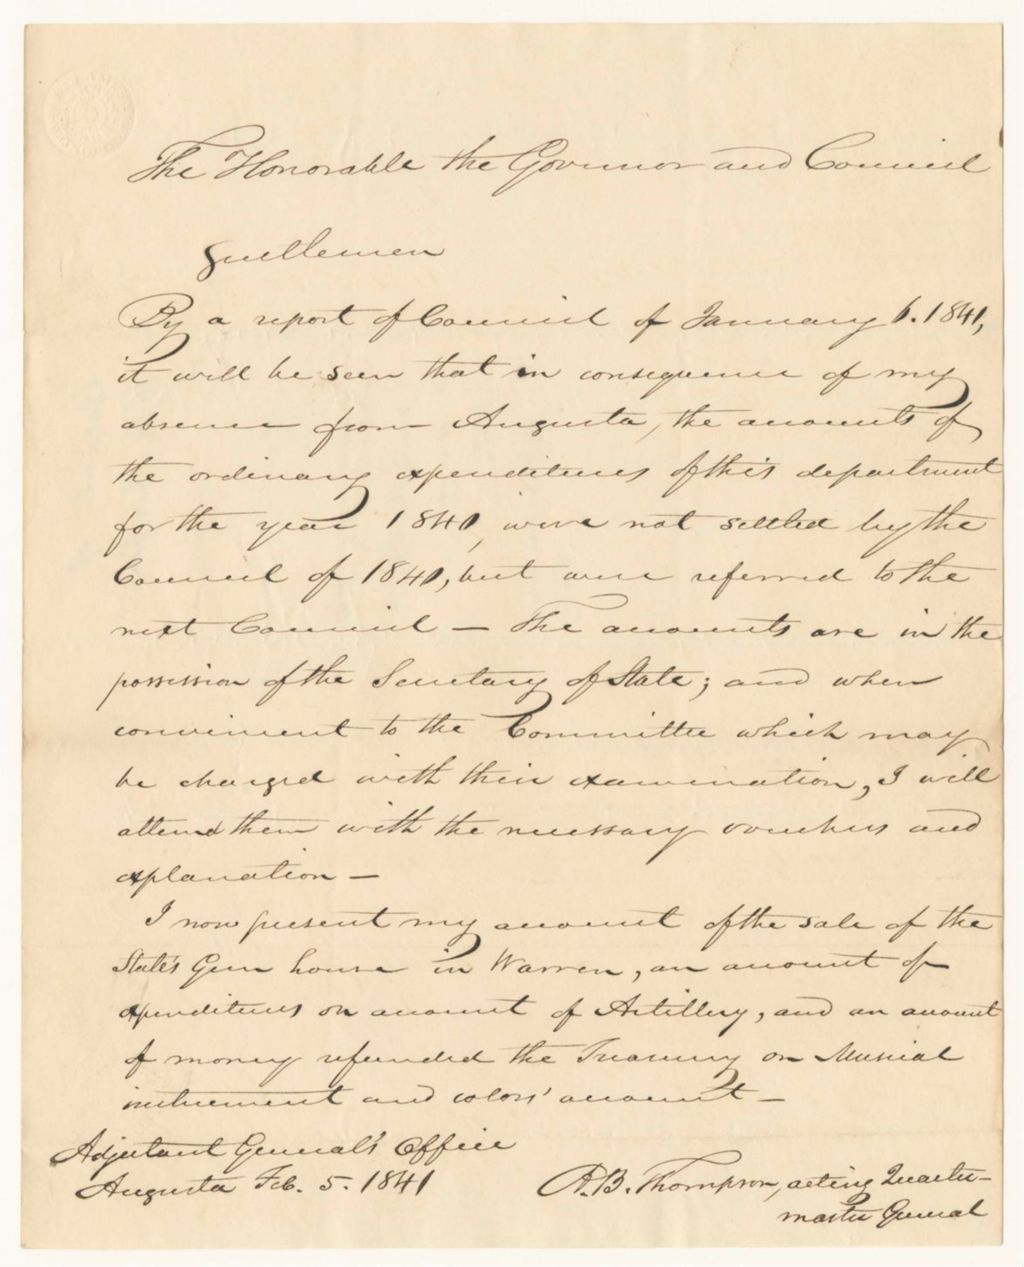 The Honorable the Governor and Council
Gentlemen
By a report of Council of January 6. 1841,
it will be seen that in consequence of my
absence from Augusta, the accounts of
the ordinary expenditures of this department
for the year 1840, were not settled by the
Council of 1840, but were referred to the
next Council — The accounts are in the
possession of the Secretary of State; and when
convenient to the Committee which may
be charged with their examination, I will
attend them with the necessary vouchers and
explanation —
I now present my account of the sale of the
State's Gun house in Warren, an account of
expenditures on account of Artillery, and an account
of money refunded the Treasury on Musical
instrument and colors' account —
Adjutant General's Office
Augusta Feb. 5. 1841
A. B. Thompson, acting Quarter-
master General